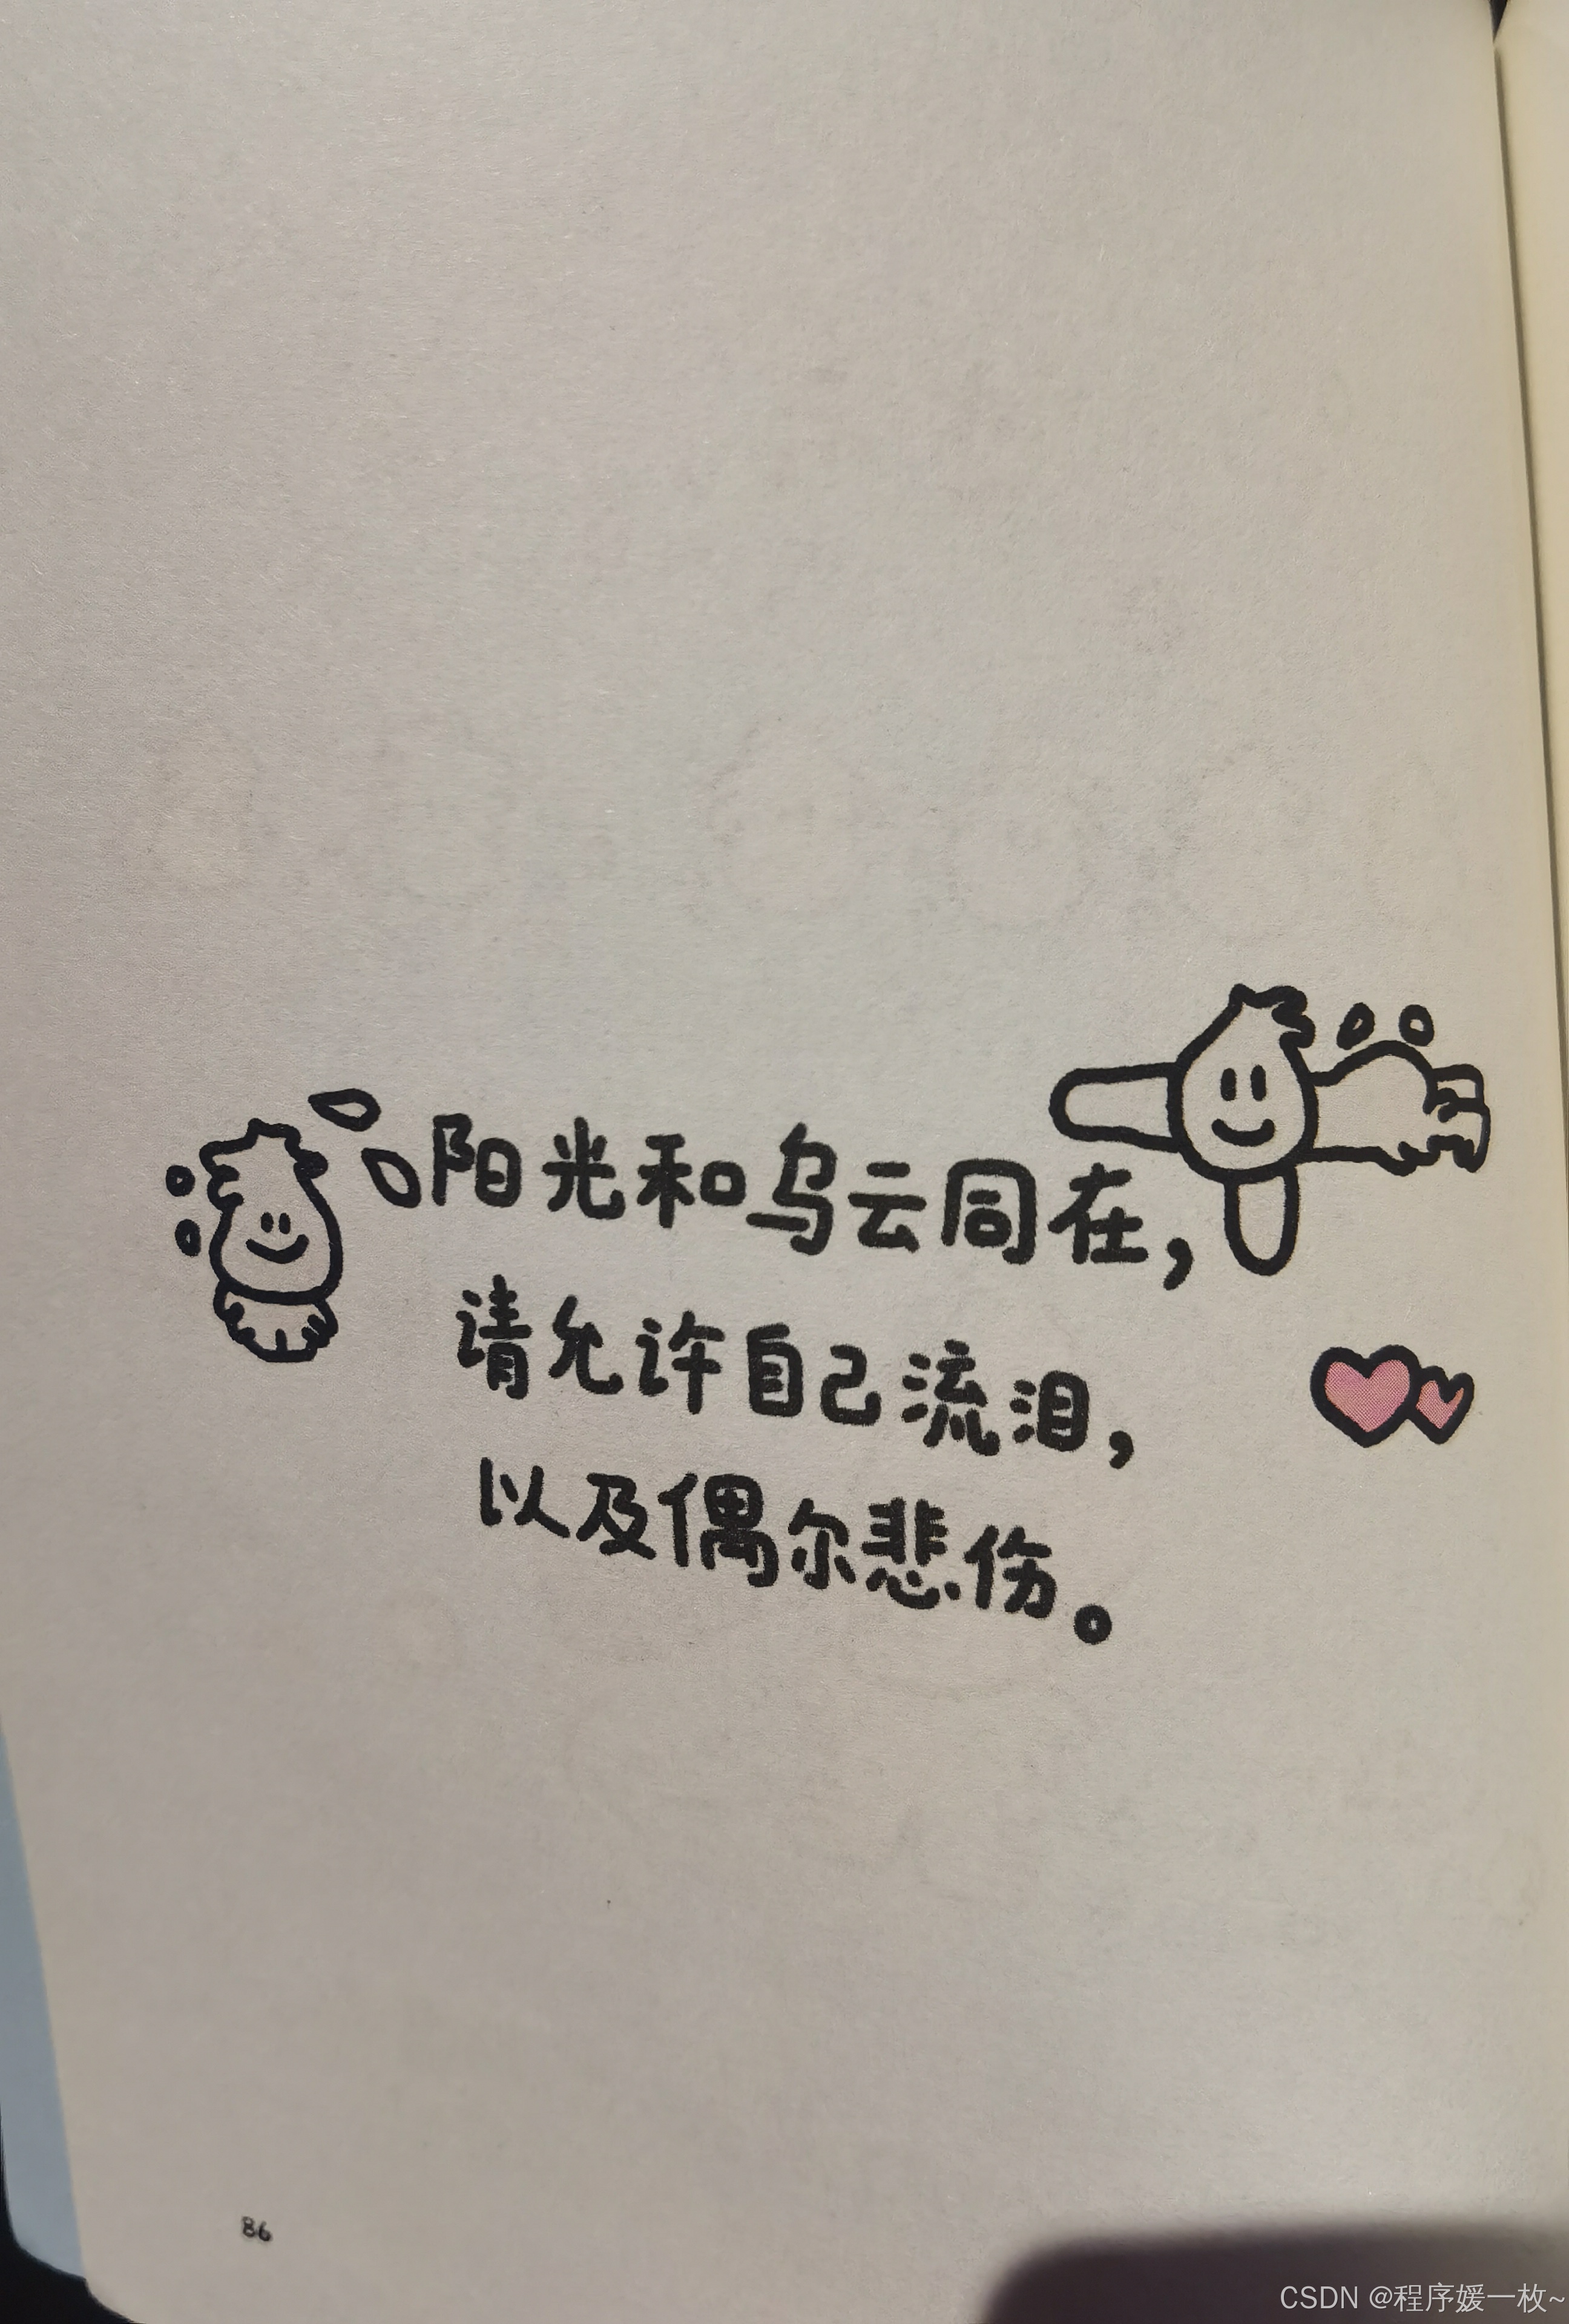 阳光和乌云同在，
请允许自己流泪，
以及偶尔悲伤。
86
CSDN @程序媛一枚~